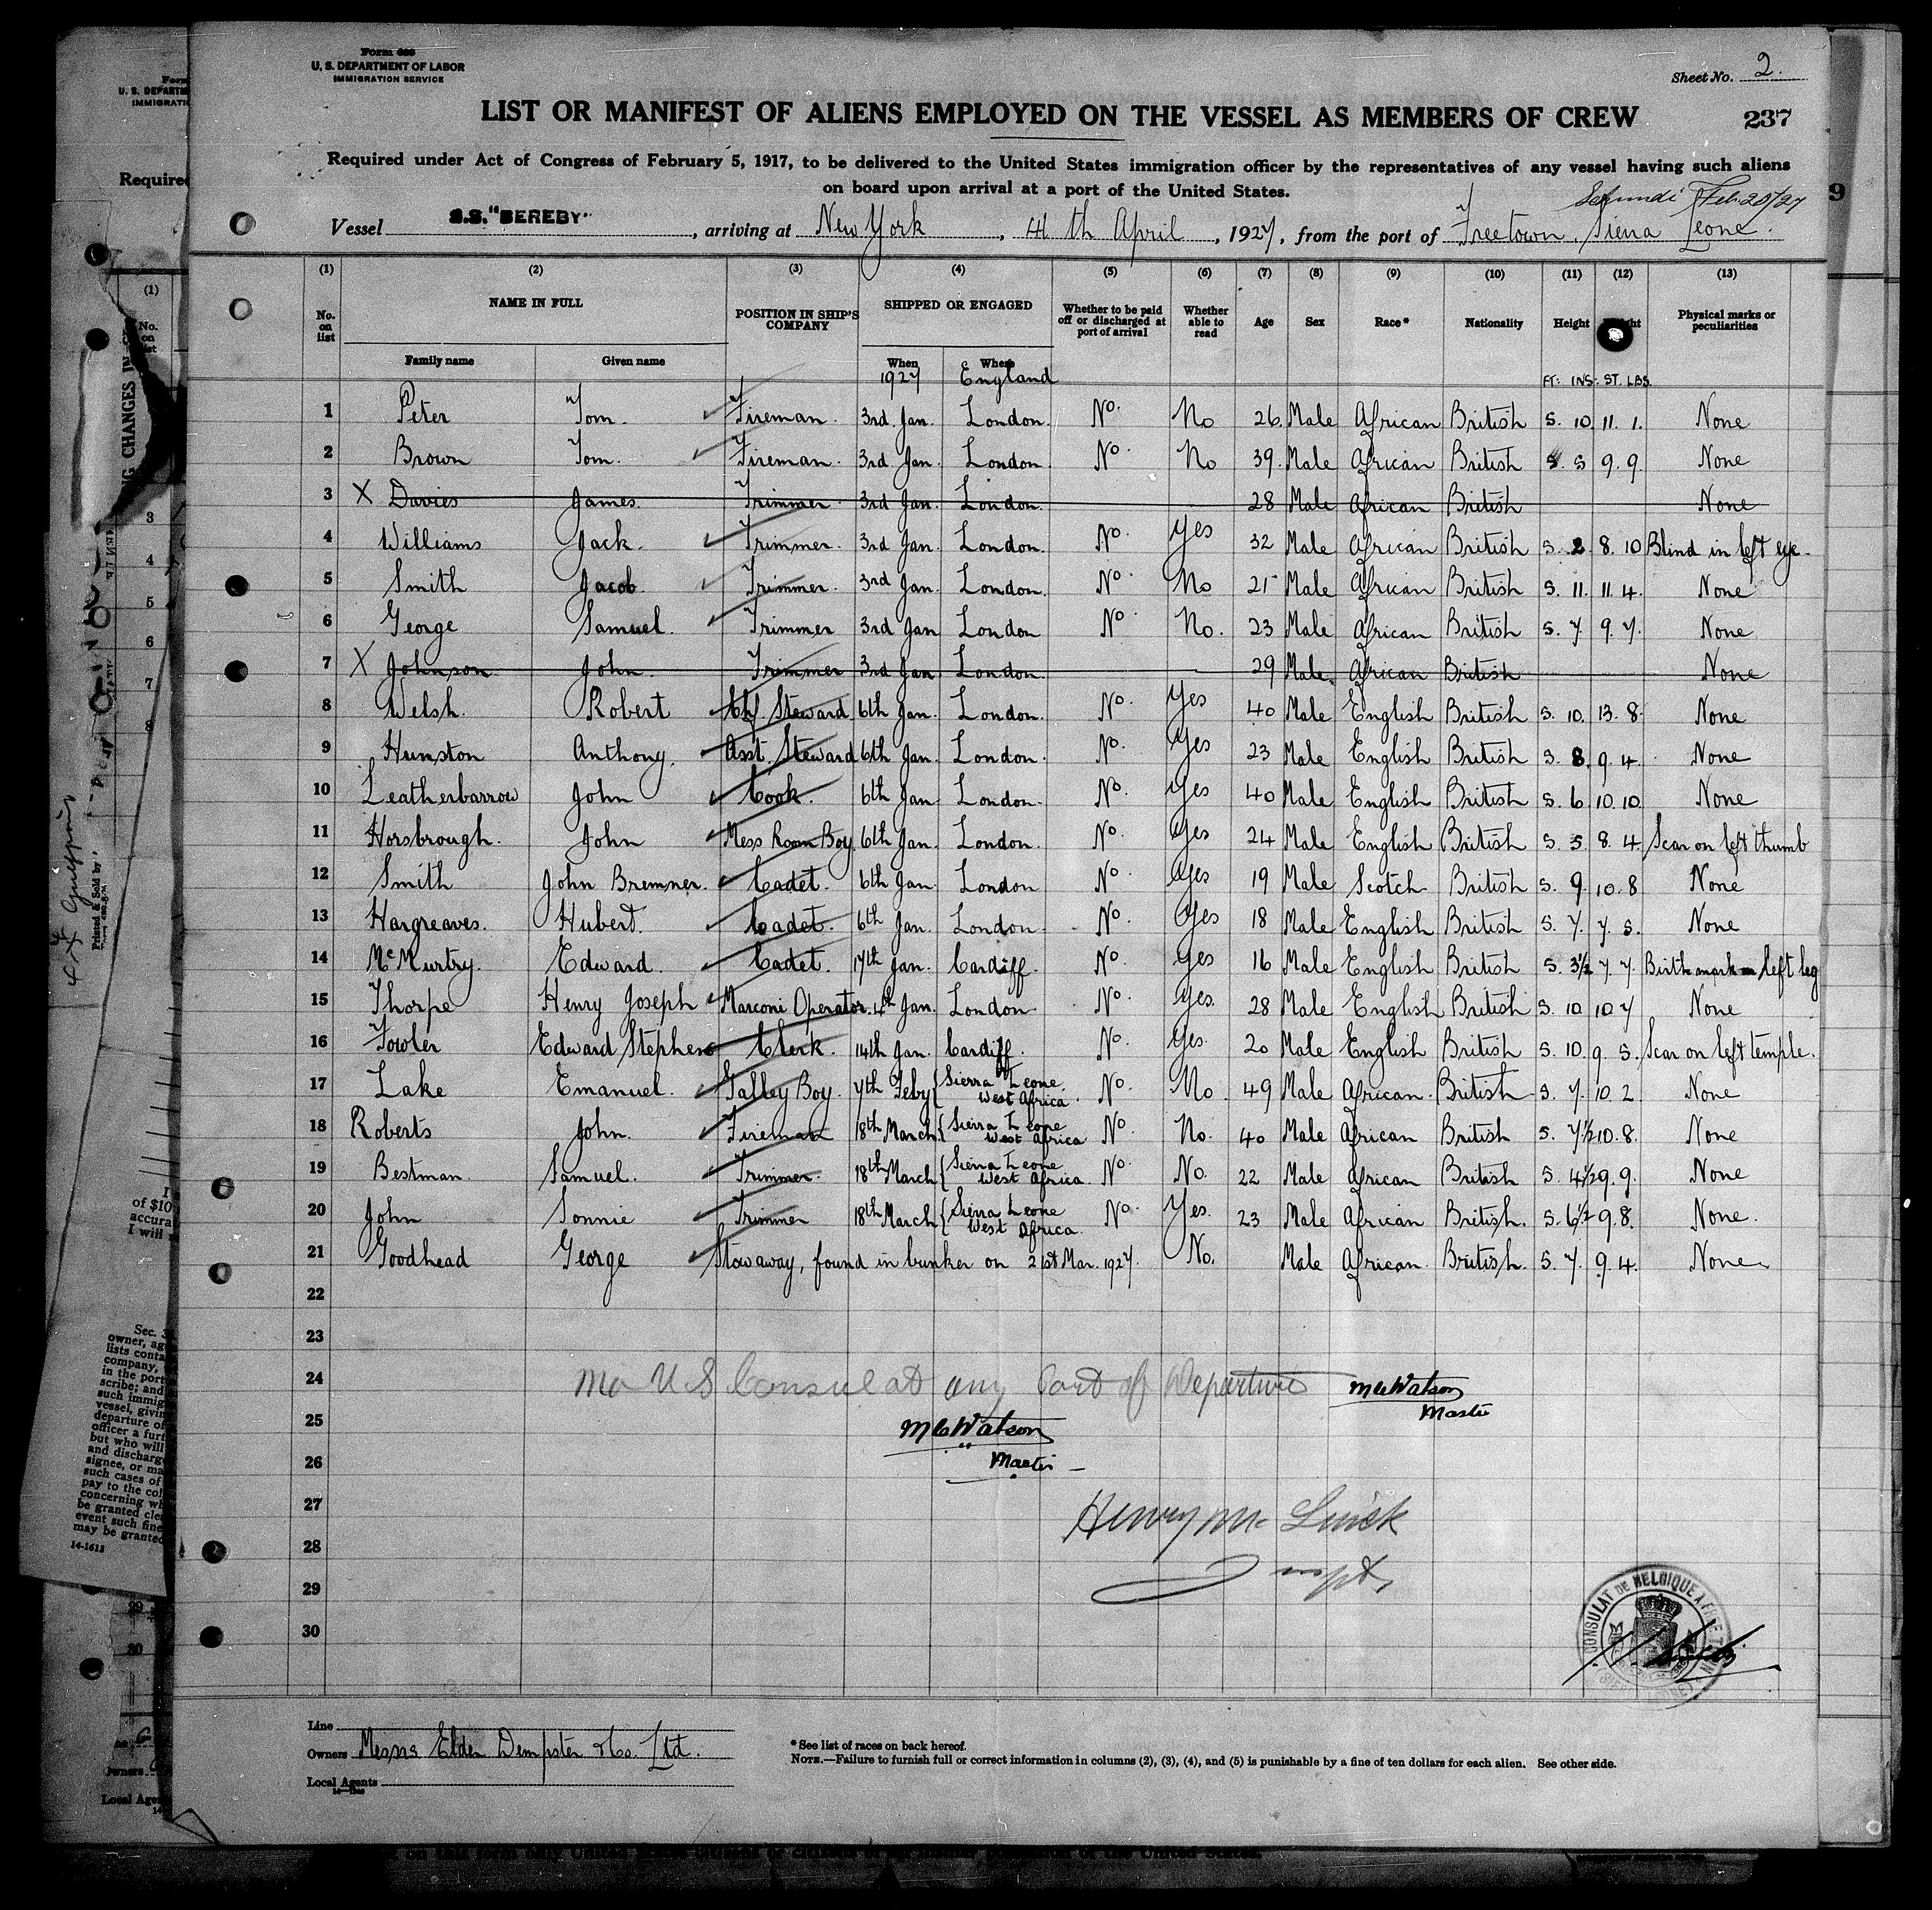 Form 686
U. S. DEPARTMENT OF LABOR
IMMIGRATION SERVICE
Sheet No. 2.
LIST OR MANIFEST OF ALIENS EMPLOYED ON THE VESSEL AS MEMBERS OF CREW
237
Required under Act of Congress of February 5, 1917, to be delivered to the United States immigration officer by the representatives of any vessel having such aliens
on board upon arrival at a port of the United States.
Feb 20/27
Vessel S.S. "BEREBY", arriving at New York, 4th April, 1927, from the port of Freetown, Sierra Leone.
(1) (2) (3) (4) (5) (6) (7) (8) (9) (10) (11) (12) (13)
No. on list NAME IN FULL POSITION IN SHIP'S COMPANY SHIPPED OR ENGAGED Whether to be paid off or discharged at port of arrival Whether able to read Age Sex Race* Nationality Height Physical marks or peculiarities
Family name Given name When Where
1927 England FT: INS: ST. LBS.
1 Peter Tom. Fireman. 3rd. Jan. London. No. No 26. Male African British 5. 10. 11. 1. None
2 Brown Tom. Fireman. 3rd Jan. London. No. No 39. Male African British 5. 5 9. 9. None
3 X Davies James. Trimmer. 3rd Jan. London. 28 Male African British None
4 Williams Jack. Trimmer. 3rd Jan. London. No. Yes 32 Male African British 5. 2 8. 10 Blind in left eye.
5 Smith Jacob. Trimmer. 3rd Jan. London. No. No 21 Male African British 5. 11. 11. 4. None
6 George Samuel. Trimmer 3rd Jan London No No. 23 Male African British 5. 7. 9. 7. None
7 X Johnson John. Trimmer 3rd Jan London. 29 Male. African British None
8 Welsh. Robert Chf. Steward 6th Jan. London. No. Yes 40 Male English British 5. 10. 13. 8. None
9 Hunston Anthony. Asst. Steward 6th Jan. London. No. Yes 23 Male English British 5. 8. 9. 4. None
10 Leatherbarrow John Cook. 6th Jan London. No. Yes 40 Male English British 5. 6 10. 10. None
11 Horsbrough. John Mess Room Boy. 6th Jan. London. No. Yes 24 Male English British 5. 5. 8. 4. Scar on left thumb
12 Smith John Bremner. Cadet. 6th Jan. London No. Yes 19 Male Scotch British 5. 9. 10. 8 None
13 Hargreaves. Hubert. Cadet. 6th Jan. London. No. Yes 18 Male English British 5. 7. 7. 5. None
14 McMurtry. Edward. Cadet. 17th Jan. Cardiff. No. Yes 16 Male English British 5. 3½ 7 7. Birth mark on left leg
15 Thorpe Henry Joseph Marconi Operator. 4th Jan. London. No. Yes. 28 Male English British 5. 10 10 7 None
16 Fowler Edward Stephens Clerk. 14th Jan. Cardiff. No. Yes. 20 Male English British 5. 10. 9. 5. Scar on left temple.
17 Lake Emanuel. Galley Boy. 7th Feby { Sierra Leone. West Africa. No. No. 49 Male African. British 5. 7. 10. 2. None
18 Roberts John. Fireman 18th March { Sierra Leone West Africa No. No. 40 Male African British 5. 7½ 10. 8. None
19 Bestman. Samuel. Trimmer. 18th March { Sierra Leone West Africa. No. No. 22 Male African British 5. 4½ 9. 9. None
20 John Sonnie Trimmer 18th March { Sierra Leone West Africa. No. Yes. 23 Male African British. 5. 6½ 9. 8. None.
21 Goodhead George Stowaway, found in bunker on 21st Mar. 1927. No. Male African. British. 5. 7. 9. 4. None.
22
23
24 No U S Consul at any Port of Departure M C Watson
Master
25 M C Watson
26 Master
27 Henry Mc
28 Inspt.
29
30
CONSULAT DE BELGIQUE A FREETOWN
Line
Owners Messrs Elder Dempster & Co. Ltd.
Local Agents
*See list of races on back hereof.
NOTE.—Failure to furnish full or correct information in columns (2), (3), (4), and (5) is punishable by a fine of ten dollars for each alien. See other side.